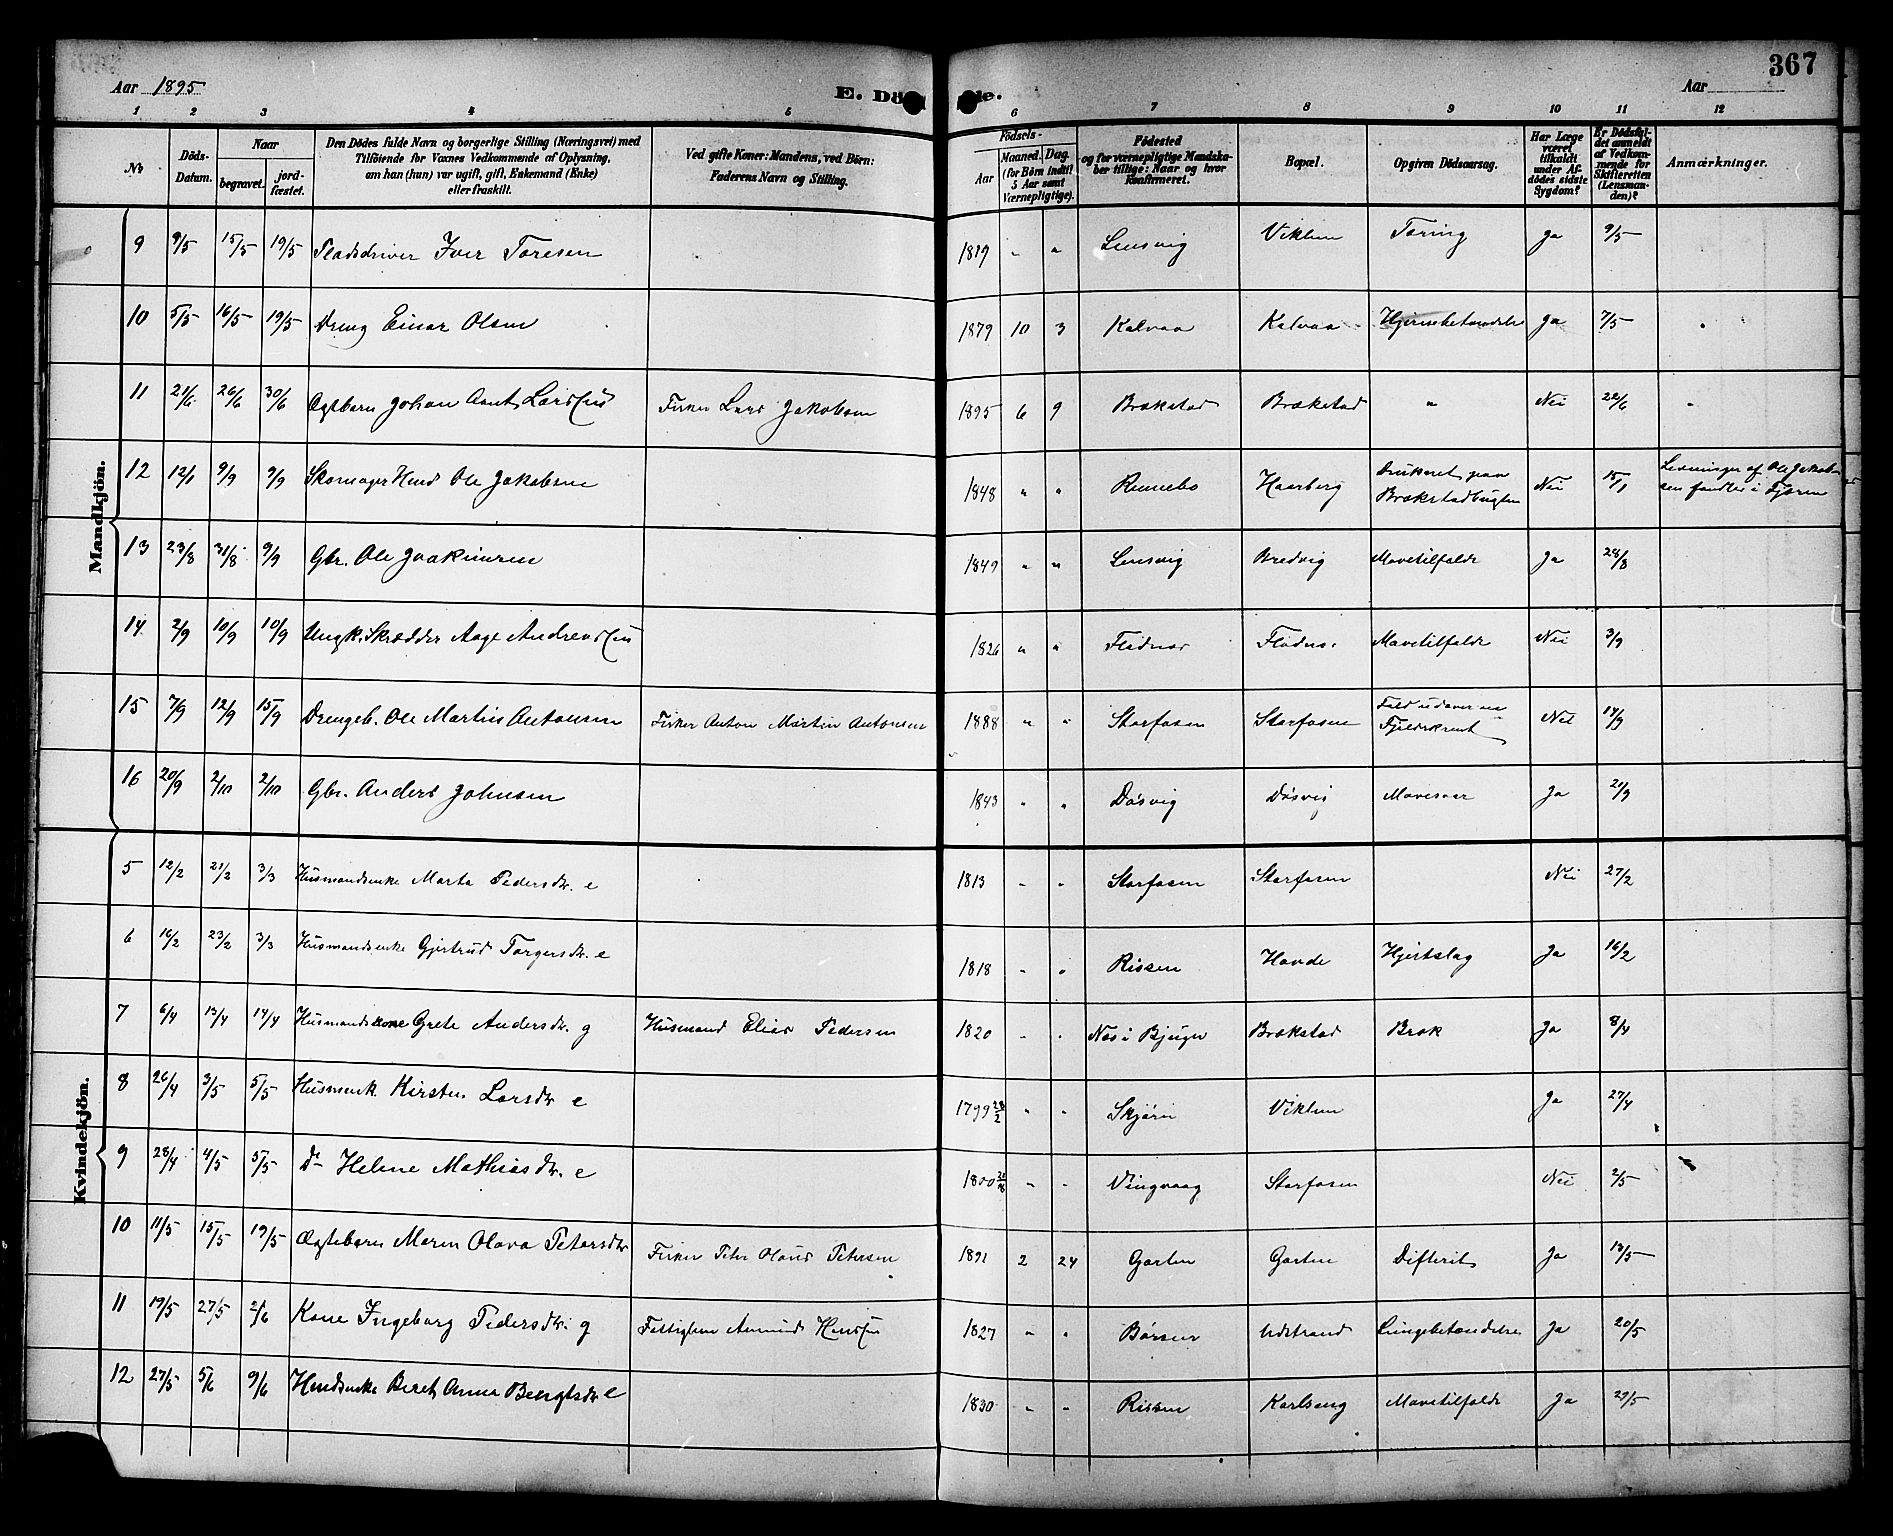 367
Aar 1895
E. Dö de.
Aar
1 2 3 4 5 6 7 8 9 10 11 12
No
Döds-Datum.
Naar
begravet.
jord-fæstet.
Den Dödes fulde Navn og borgerlige Stilling (Næringsvei) med
Tilföiende for Voxnes Vedkommende af Oplysning,
om han (hun) var ugift, gift, Enkemand (Enke)
eller fraskilt.
Ved gifte Koner: Mandens, ved Börn:
Faderens Navn og Stilling.
Födsels-
Aar
Maaned. Dag.
(for Börn indtil
5 Aar samt
Værnepligtige).
Födested
og for værnepligtige Mandska-
ber tillige: Naar og hvor
konfirmeret.
Bopæl.
Opgiven Dödsaarsag.
Har Læge
været
tilkaldt
under Af-
dödes sidste
Sygdom?
Er Dödsfal-
det anmeldt
af Vedkom-
mende for
Skifteretten
(Lensman-
den)?
Anmærkninger.
Mandkjön.
9 9/5 15/5 19/5 Pladsdriver Iver Toresen 1819 " " Lensvig Viklem Tæring Ja 9/5
10 5/5 16/5 19/5 Dreng Einar Olsen 1879 10 3 Kalvaa Kalvaa Hjernebetændelse Ja 7/5
11 21/6 26/6 30/6 Ægtebarn Johan Arnt Larssen Fisker Lars Jakobsen 1895 6 9 Brækstad Brækstad " Nei 22/6 "
12 12/1 9/9 9/9 Skomager Hmd Ole Jakobsen 1848 " " Rennebo Haarberg Druknet paa Brækstadbugten Nei 15/1 Levninger af Ole Jakob-
sen fandtes i Fjæren
13 23/8 31/8 9/9 Gbr. Ole Joakimsen 1849 " " Lensvig Bredvig Mavetilfælde Ja 28/8
14 2/9 10/9 10/9 Ungk. Skrædder Aage Andreassen 1826 " " Flodnes Flodnes Mavetilfælde Nei 3/9
15 7/9 12/9 15/9 Drengeb. Ole Martin Antonsen Fisker Anton Martin Antonsen 1888 " " Storfosen Storfosen Fald udover en Fjeldskrent Nei 14/9
16 20/9 2/10 2/10 Gbr. Anders Johnsen 1843 " " Døsvig Døsvig Mavesaar Ja 21/9
Kvindekjön.
5 12/2 21/2 3/3 Husmandsenke Marta Pedersdtr. e 1813 " " Storfosen Storfosen Nei 27/2
6 16/2 23/2 3/3 Husmandsenke Gjertrud Torgersdtr. e 1818 " " Rissen Hovde Hjertslag Ja 16/2
7 6/4 13/4 14/4 Husmandskone Grete Andersdtr. g Husmand Elias Pedersen 1820 " " Næs i Bjugn Brækstad Brok Ja 8/4
8 26/4 3/5 5/5 Husmenk. Kirsten Larsdtr e 1799 28/2 " " Skjørn Viklem Ja 27/4
9 28/4 4/5 5/5 Do Helene Mathiasdtr. e 1800 " " Vingvaag Storfosen Nei 2/5
10 11/5 15/5 19/5 Ægtebarn Maren Olava Petersdtr Fisker Peter Olaus Petersen 1891 2 24 Garten Garten Difterit Ja 13/5
11 19/5 27/5 2/6 Kone Ingeborg Pedersdtr. g Fattiglem Amund Hanssen 1827 " " Børsen Udstrand Lungebetændelse Ja 20/5
12 27/5 5/6 9/6 Hmdsenke Beret Anna Bengtsdtr e 1830 " " Rissen Karlseng Mavetilfælde Ja 29/5